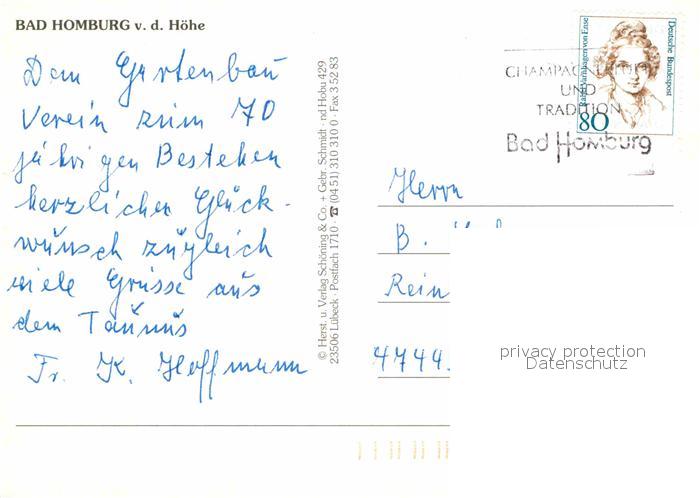 BAD HOMBURG v. d. Höhe
Dem Gartenbau
Verein zum 70
jährigen Bestehen
herzlichen Glück-
wunsch zugleich
viele Grüsse aus
dem Taunus
Fr. K. Hoffmann
© Herst. u. Verlag Schöning & Co. + Gebr. Schmidt · nd Hobu 429
23506 Lübeck · Postfach 1710 · ☎ (04 51) 310 310 0 · Fax 3 52 83
Deutsche Bundespost
Rahel Varnhagen von Ense
80
UND
TRADITION
Bad Homburg
Herrn
B.
Rein
4744.
privacy protection
Datenschutz